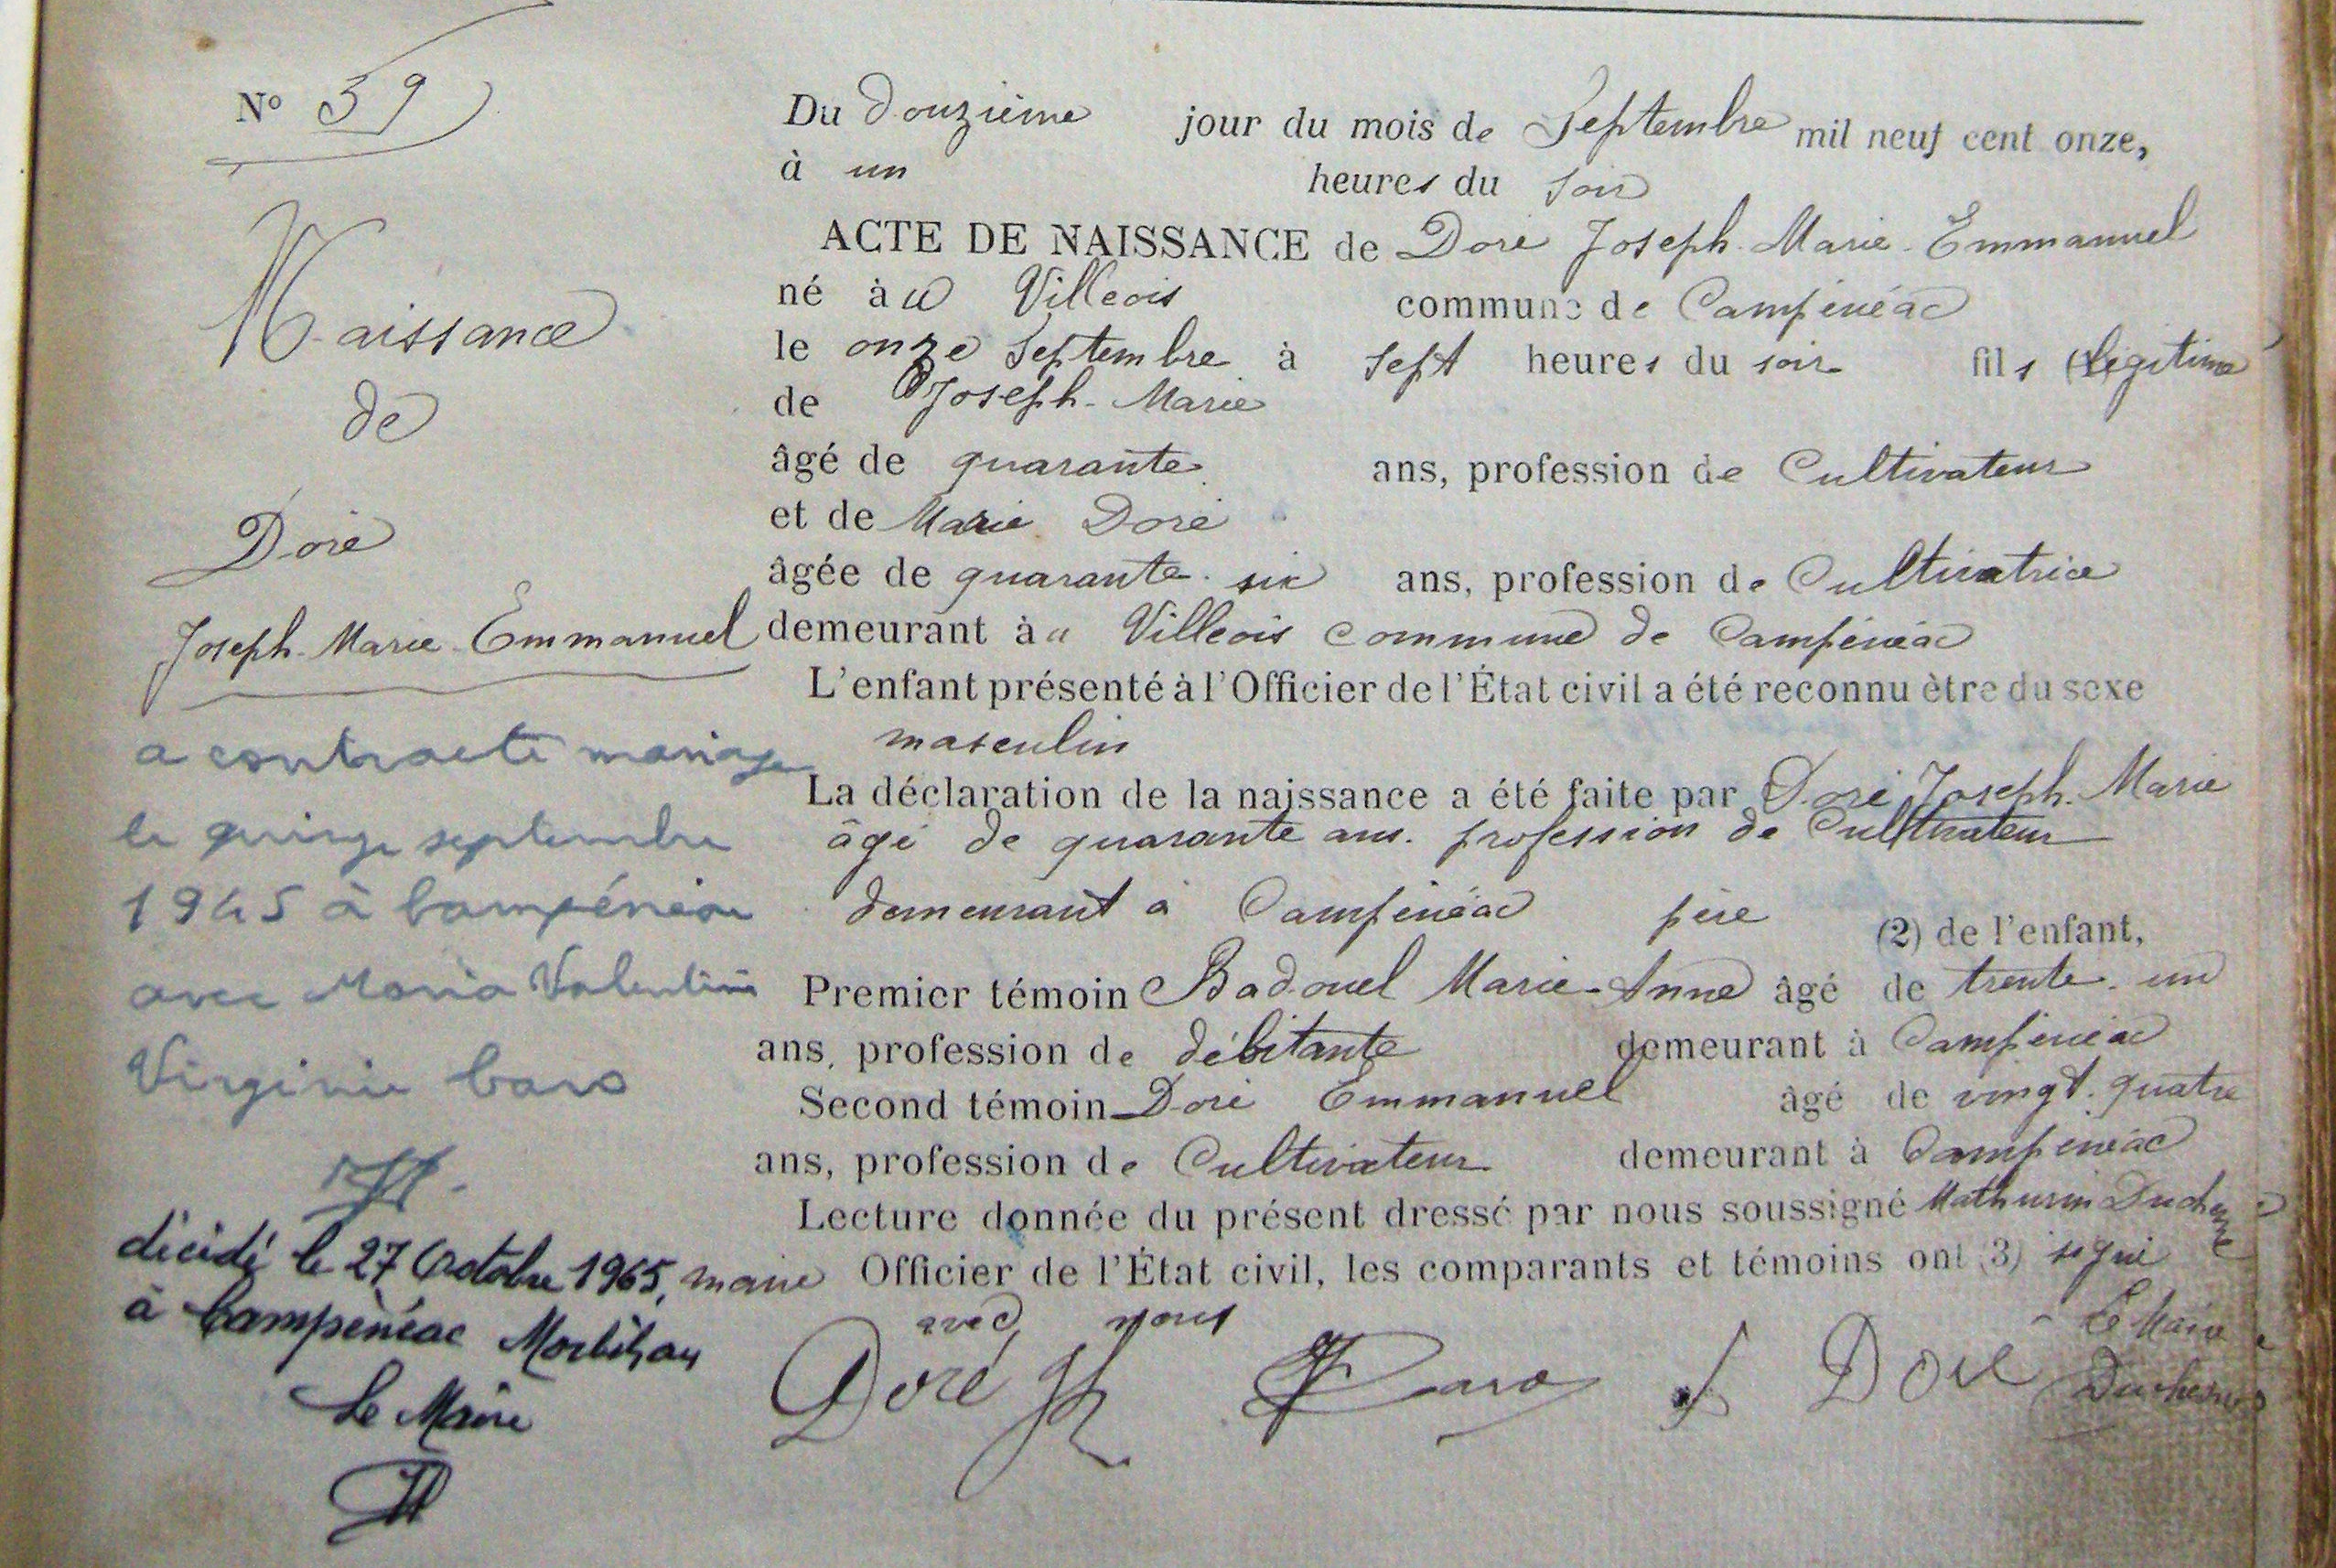 N° 39
Naissance
de
Doré
Joseph Marie Emmanuel
a contracté mariage
le quinze septembre
1945 à Campénéac
avec Maria Valentine
Virginie
décédé le 27 Octobre 1965,
à Campénéac Morbihan
Le Maire
Du douzième jour du mois de Septembre mil neuf cent onze,
à un heures du soir
ACTE DE NAISSANCE de Doré Joseph Marie Emmanuel
né à u Villeois commune de Campénéac
le onze Septembre à sept heures du soir fils légitime
de Joseph Marie
âgé de quarante ans, profession de Cultivateur
et de Marie Doré
âgée de quarante six ans, profession de Cultivatrice
demeurant à u Villeois commune de Campénéac
L'enfant présenté à l'Officier de l'État civil a été reconnu être du sexe
masculin
La déclaration de la naissance a été faite par Doré Joseph Marie
âgé de quarante ans profession de Cultivateur
demeurant à Campénéac père (2) de l'enfant,
Premier témoin Badouel Marie-Anne âgé de trente un
ans, profession de débitante demeurant à Campénéac
Second témoin Doré Emmanuel âgé de vingt quatre
ans, profession de Cultivateur demeurant à Campénéac
Lecture donnée du présent dressé par nous soussigné Mathurin Duchesne
maire Officier de l'État civil, les comparants et témoins ont (3) signé
avec nous
Doré
Doré
Le Maire
Duchesne